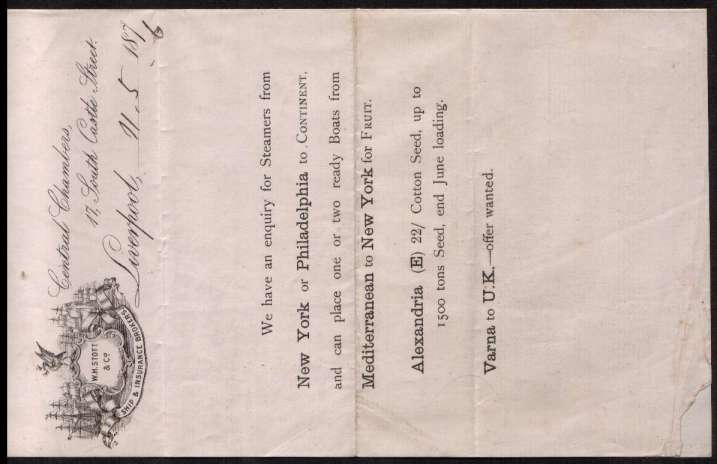 W.H. STOTT
& Co
SHIP & INSURANCE BROKERS.
Central Chambers,
17, South Castle Street.
Liverpool, 11.5 1876
We have an enquiry for Steamers from
New York or Philadelphia to CONTINENT,
and can place one or two ready Boats from
Mediterranean to New York for FRUIT.
Alexandria (E) 22/ Cotton Seed, up to
1500 tons Seed, end June loading.
Varna to U.K.—offer wanted.